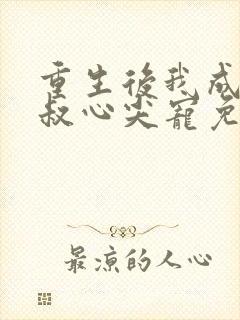 重生後我成
叔心尖寵免
最涼的人心